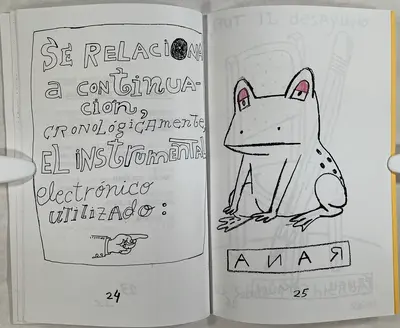 SE RELACIONA
a CONTINUA-
CIÓN,
CRONOLÓGICAMENTE,
EL INSTRUMENTAL
electrónico
UTILIZADO:
24
ANAR
25